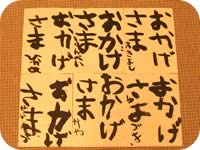 おかげ
さま
おかげ
さま
おかげ
さま
おかげ
さま
おかげ
さま
おかげ
さま